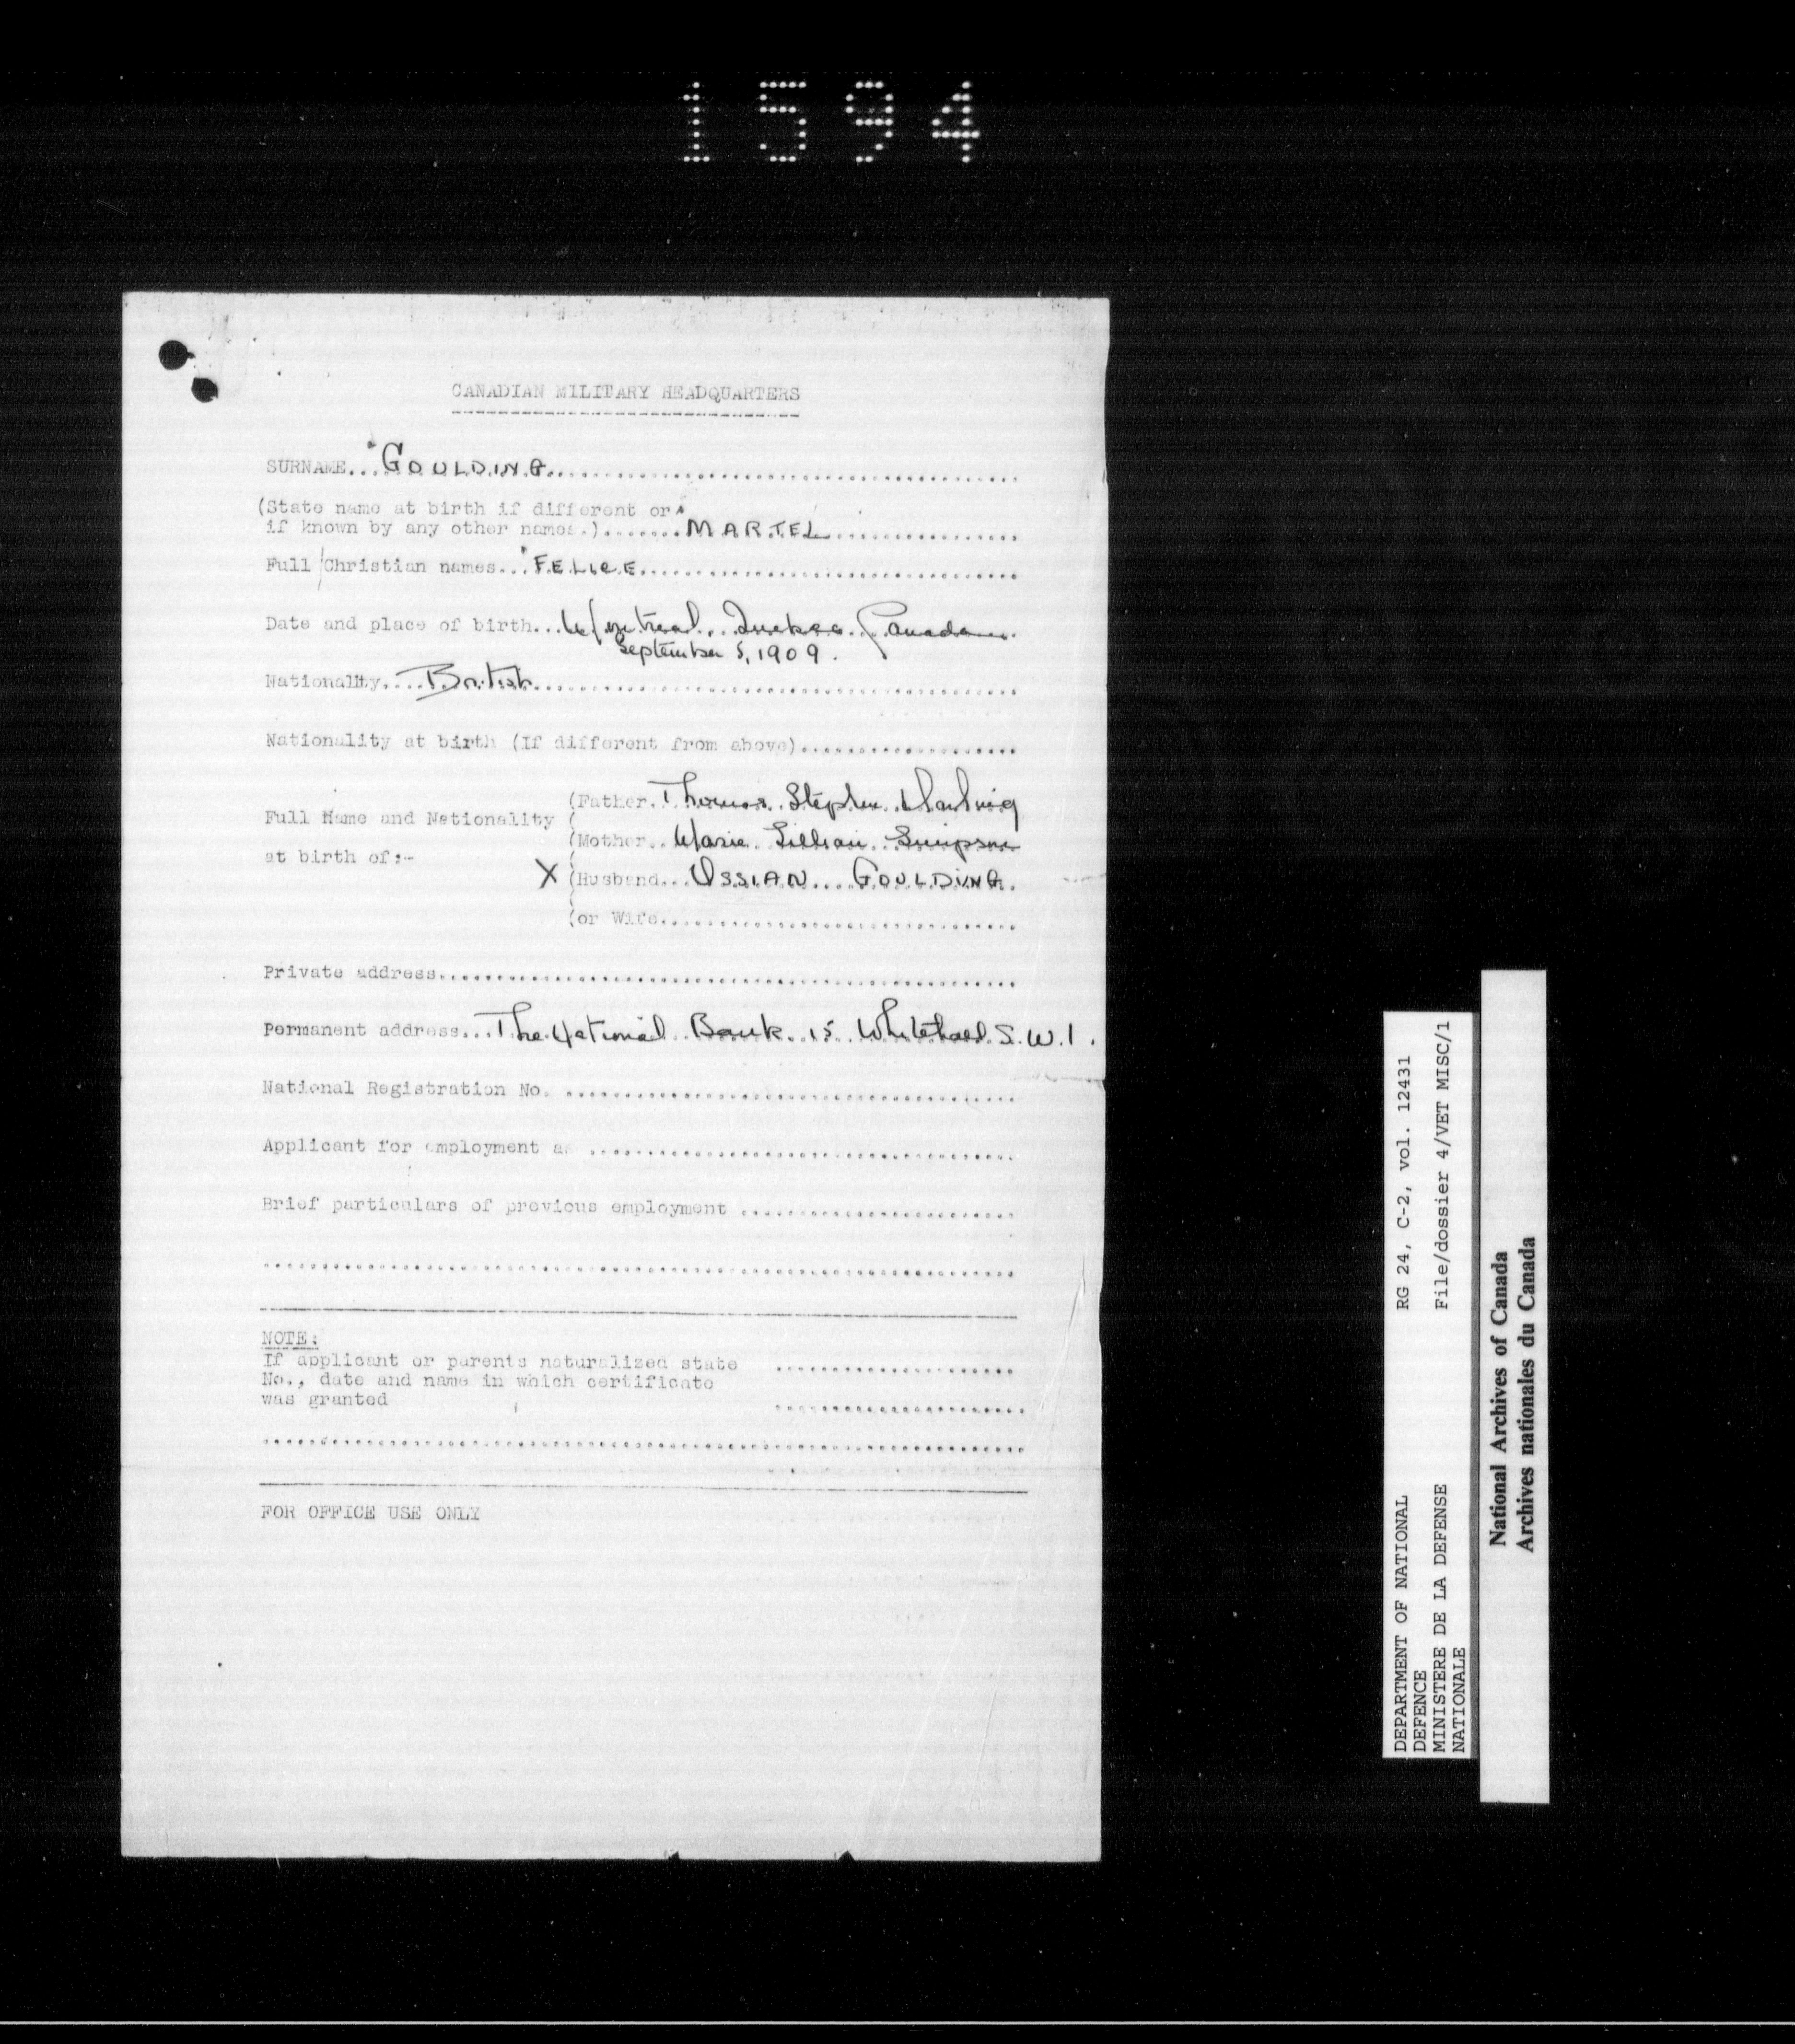 1594
CANADIAN MILITARY HEADQUARTERS
SURNAME...GOULDING...
(State name at birth if different or
if known by any other names.)........MARTEL...
Full Christian names...FELICE...
Date and place of birth..Montreal...Quebec..Canada...
September 5, 1909.
Nationality....British...
Nationality at birth (If different from above)...
(Father.Thomas Stephen
Full Name and Nationality (
(Mother..Marie Lillian Simpson
at birth of:- (
X (Husband...OSSIAN....GOULDING.
(
(or Wife...
Private address...
Permanent address...The National Bank 15 Whitehall S.W.1.
National Registration No. ...
Applicant for employment as ...
Brief particulars of previous employment ...
NOTE:
If applicant or parents naturalized state ...
No., date and name in which certificate
was granted ...
FOR OFFICE USE ONLY
DEPARTMENT OF NATIONAL RG 24, C-2, vol. 12431
DEFENCE
MINISTERE DE LA DEFENSE File/dossier 4/VET MISC/1
NATIONALE
National Archives of Canada
Archives nationales du Canada